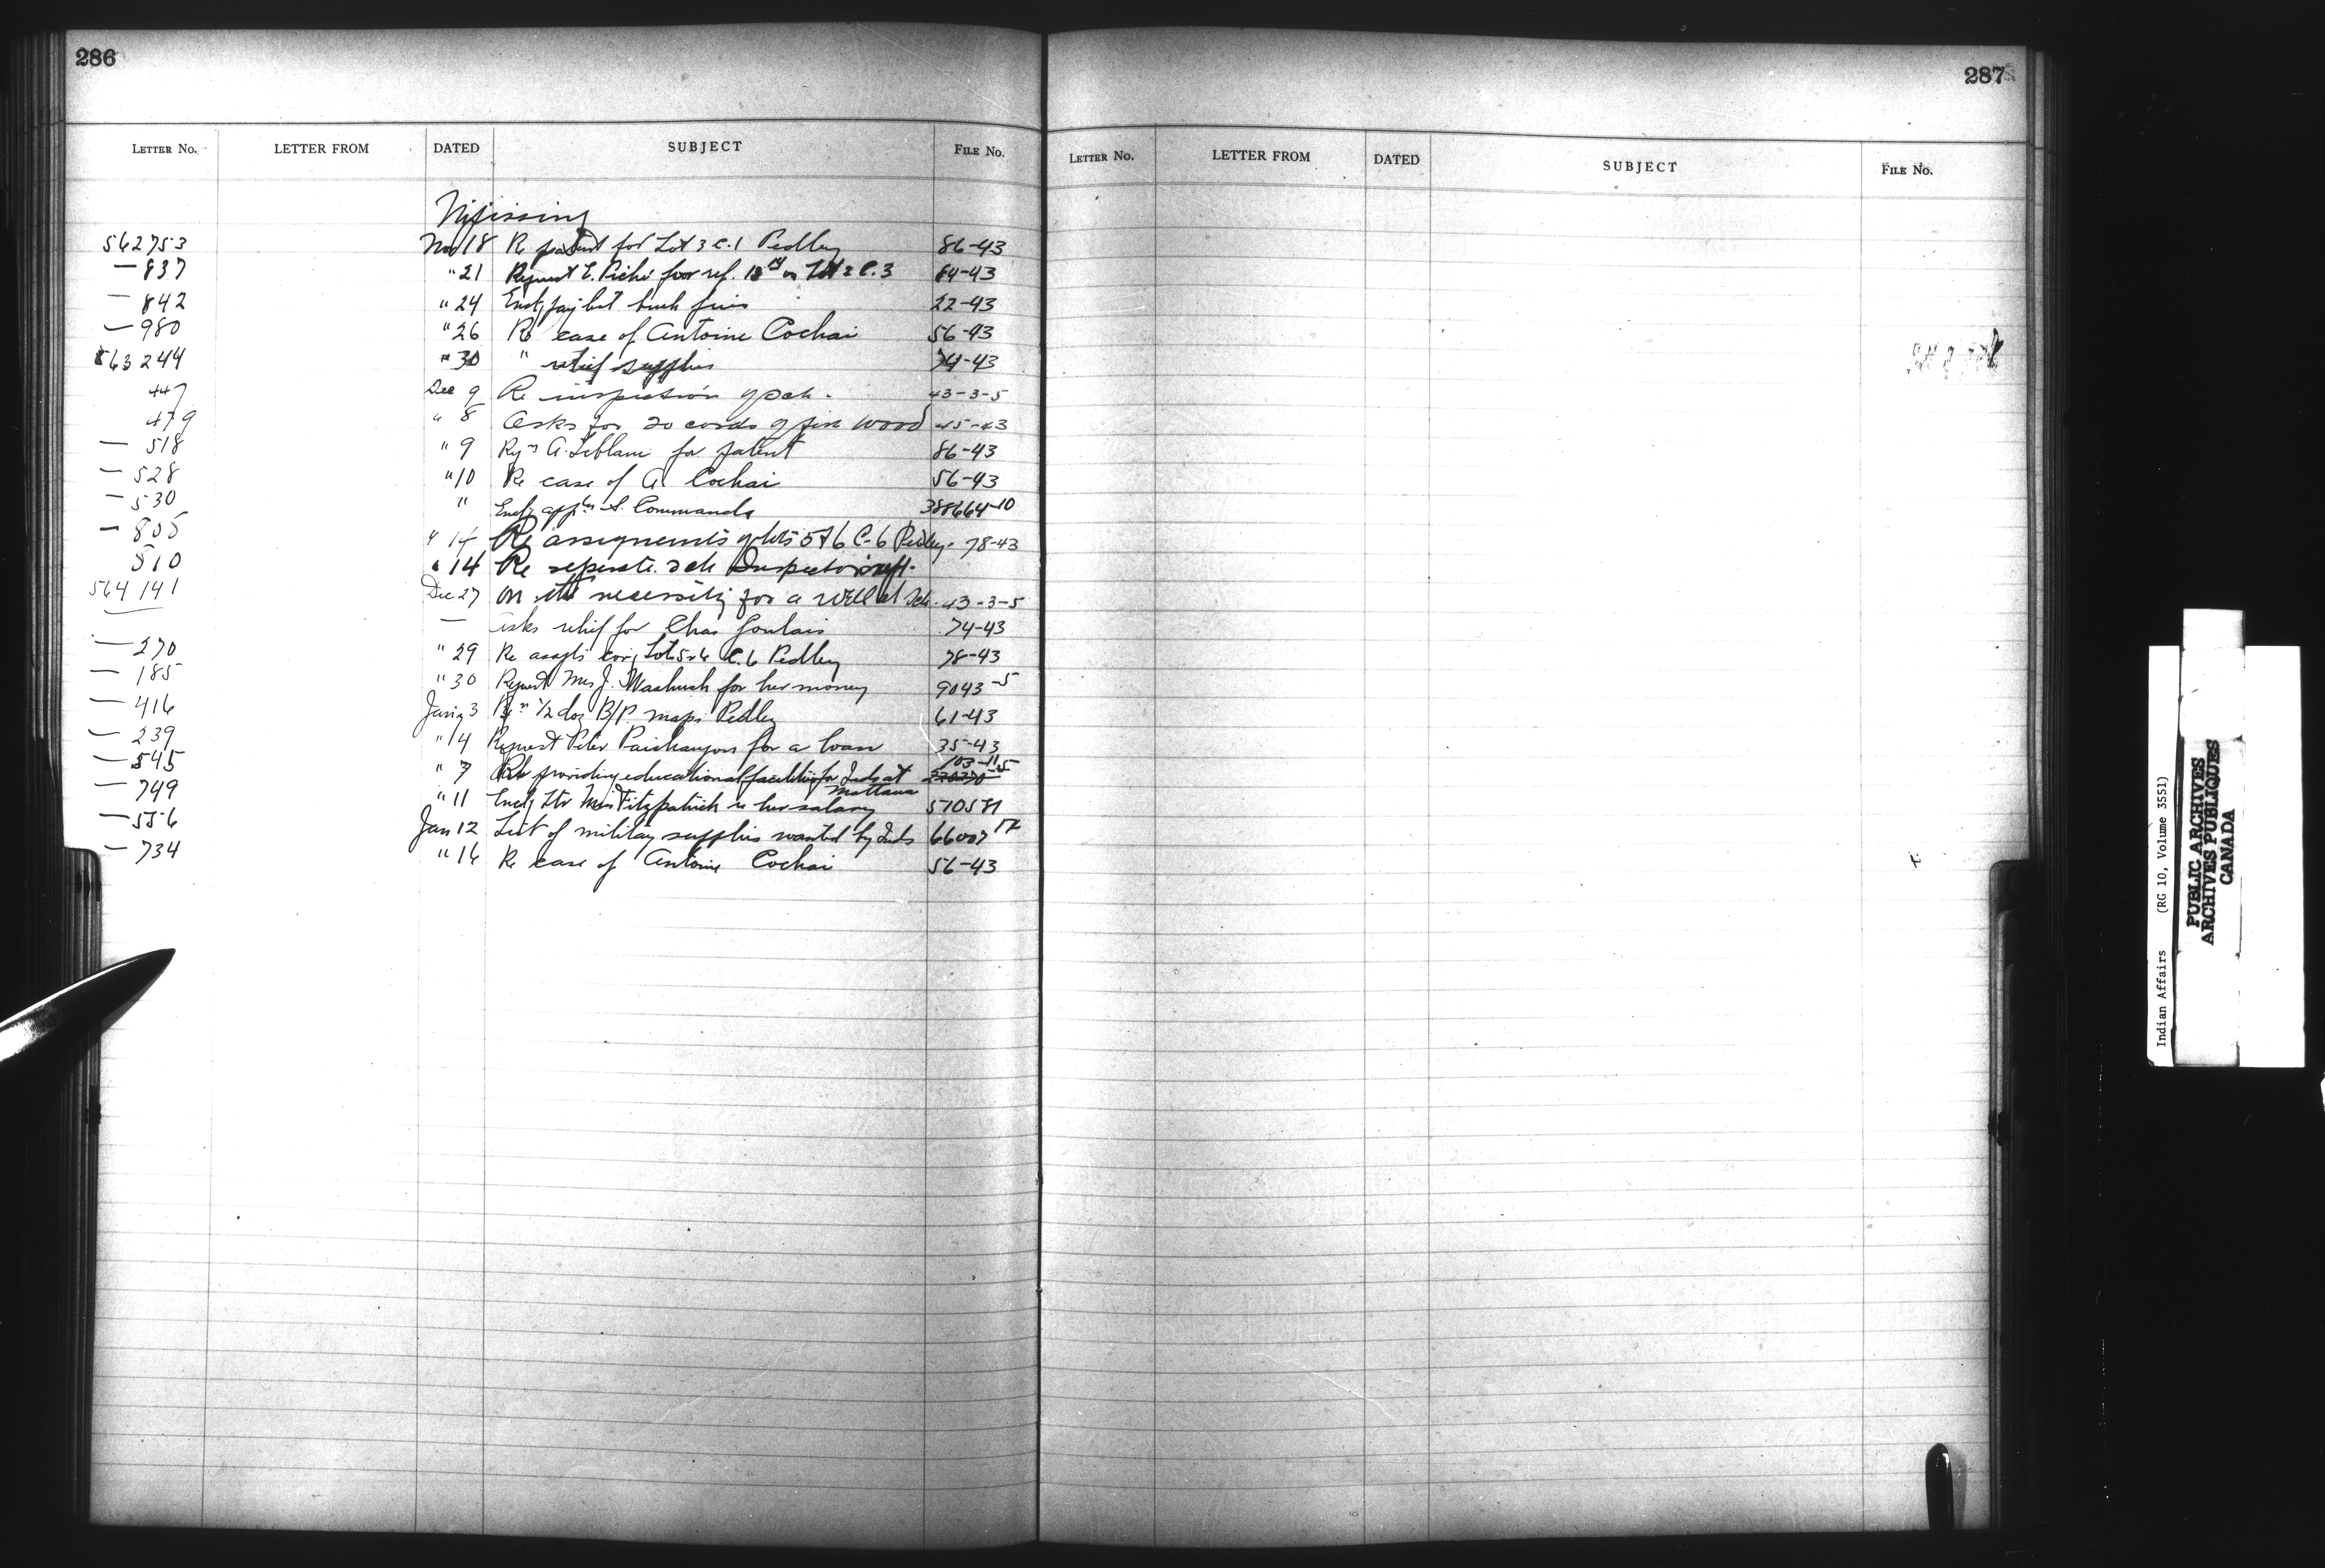 286
LETTER No. LETTER FROM DATED SUBJECT FILE No.
Nipissing
562753 Nov 18 Re patent for Lot 3 C.1 Pedley 86-43
— 837 " 21 Request E. Piché for ref. on Lot 2 C.3 64-43
— 842 " 24 Encl. pay list 22-43
— 980 " 26 Re case of Antoine Cochai 56-43
563244 " 30 " relief supplies 74-43
447 Dec 9 Re inspection of sch. 43-3-5
479 " 8 Asks for 20 cords of fire wood 45-43
— 518 " 9 A. Leblanc for patent 86-43
— 528 " 10 Re case of A. Cochai 56-43
— 530 " Encl. S. Commanda 388664-10
— 805 " 14 Re assignments of lots 5 & 6 C-6 Pedley. 78-43
510 " 14 Re seperate sch Inspectors rept.
564141 Dec 27 On the necessity for a well at Sch. 43-3-5
— Asks relief for Chas Goulais 74-43
— 270 " 29 Re assgts covg Lots 5 & 6 C. 6 Pedley 78-43
— 185 " 30 Request Mrs J. for her money 9043-5
— 416 Jany 3 1/2 doz B/P. maps Pedley 61-43
— 239 " 4 Request Peter for a loan 35-43
— 545 " 7 Re providing educational facilities for Inds at Mattawa 103-11-5
— 749 " 11 Encl. ltr Miss Fitzpatrick re her salary 510581
— 556 Jan 12 List of military supplies wanted by Inds 66007 17
— 734 " 16 Re case of Antoine Cochai 56-43
287
LETTER No. LETTER FROM DATED SUBJECT FILE No.
Indian Affairs (RG 10, Volume 3551)
PUBLIC ARCHIVES
ARCHIVES PUBLIQUES
CANADA